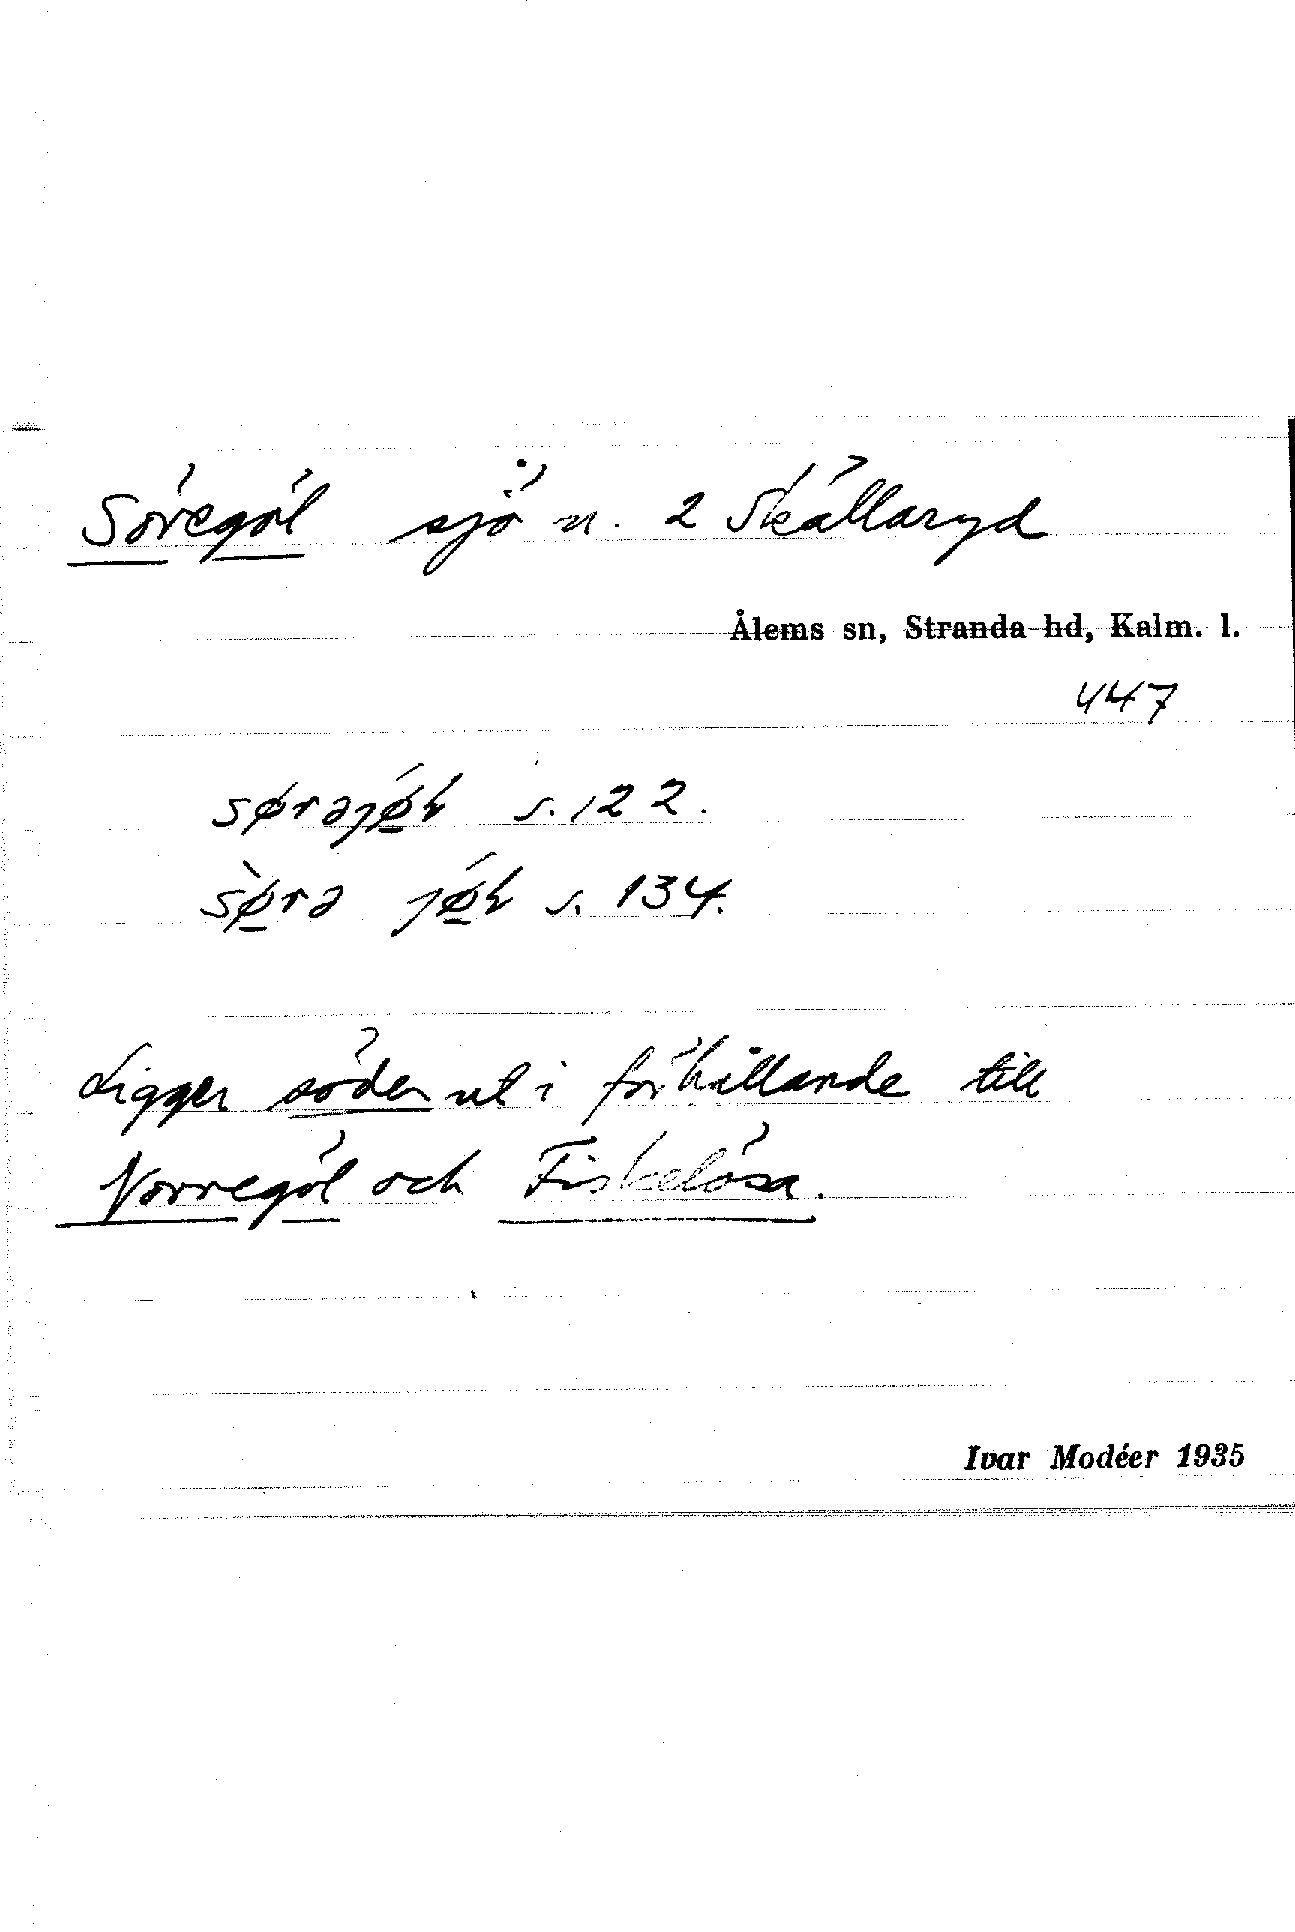 Söregöl sjö n. 2 Skällaryd
Ålems sn, Stranda hd, Kalm. l.
447
s. 122.
s. 134.
Ligger söder ut i förhållande till
Norregöl och Fiskelösa.
Ivar Modéer 1935